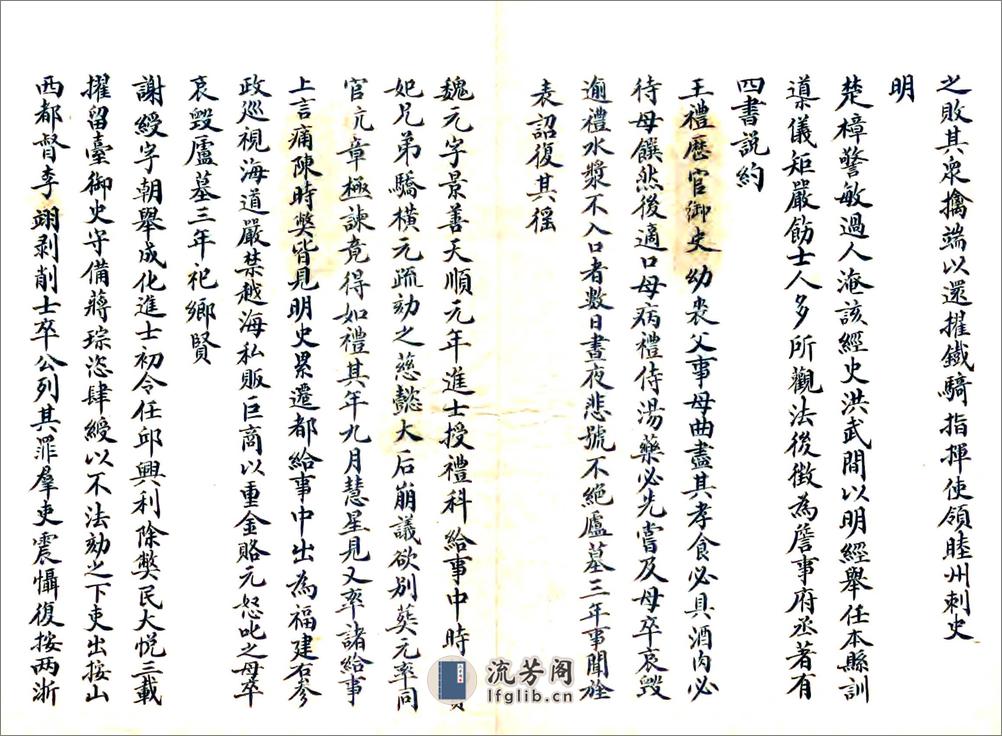 之敗其衆擒端以還擢鐵騎指揮使領睦州刺史
明
楚樟警敏過人淹該經史洪武間以明經舉任本縣訓
導儀矩嚴飭士人多所觀法後徵為詹事府丞著有
四書說約
王禮歷官御史幼喪父事母曲盡其孝食必具酒肉必
待母饌然後適口母病禮侍湯藥必先嘗及母卒哀毀
逾禮水漿不入口者數日晝夜悲號不絕廬墓三年事聞旌
表詔復其徭
魏元字景善天順元年進士授禮科給事中時
妃兄弟驕橫元疏劾之慈懿大后崩議欲別葬元率同
官亢章極諫竟得如禮其年九月慧星見又率諸給事
上言痛陳時獘皆見明史累遷都給事中出為福建右參
政巡視海道嚴禁越海私販巨商以重金賂元怒叱之母卒
哀毀廬墓三年祀鄉賢
謝綬字朝舉成化進士初令任邱興利除獘民大悅三載
擢留臺御史守備蔣琮恣肆綬以不法劾之下吏出按山
西都督李翊剥削士卒公列其罪羣吏震懾復按两浙
流芳阁
lfglib.cn